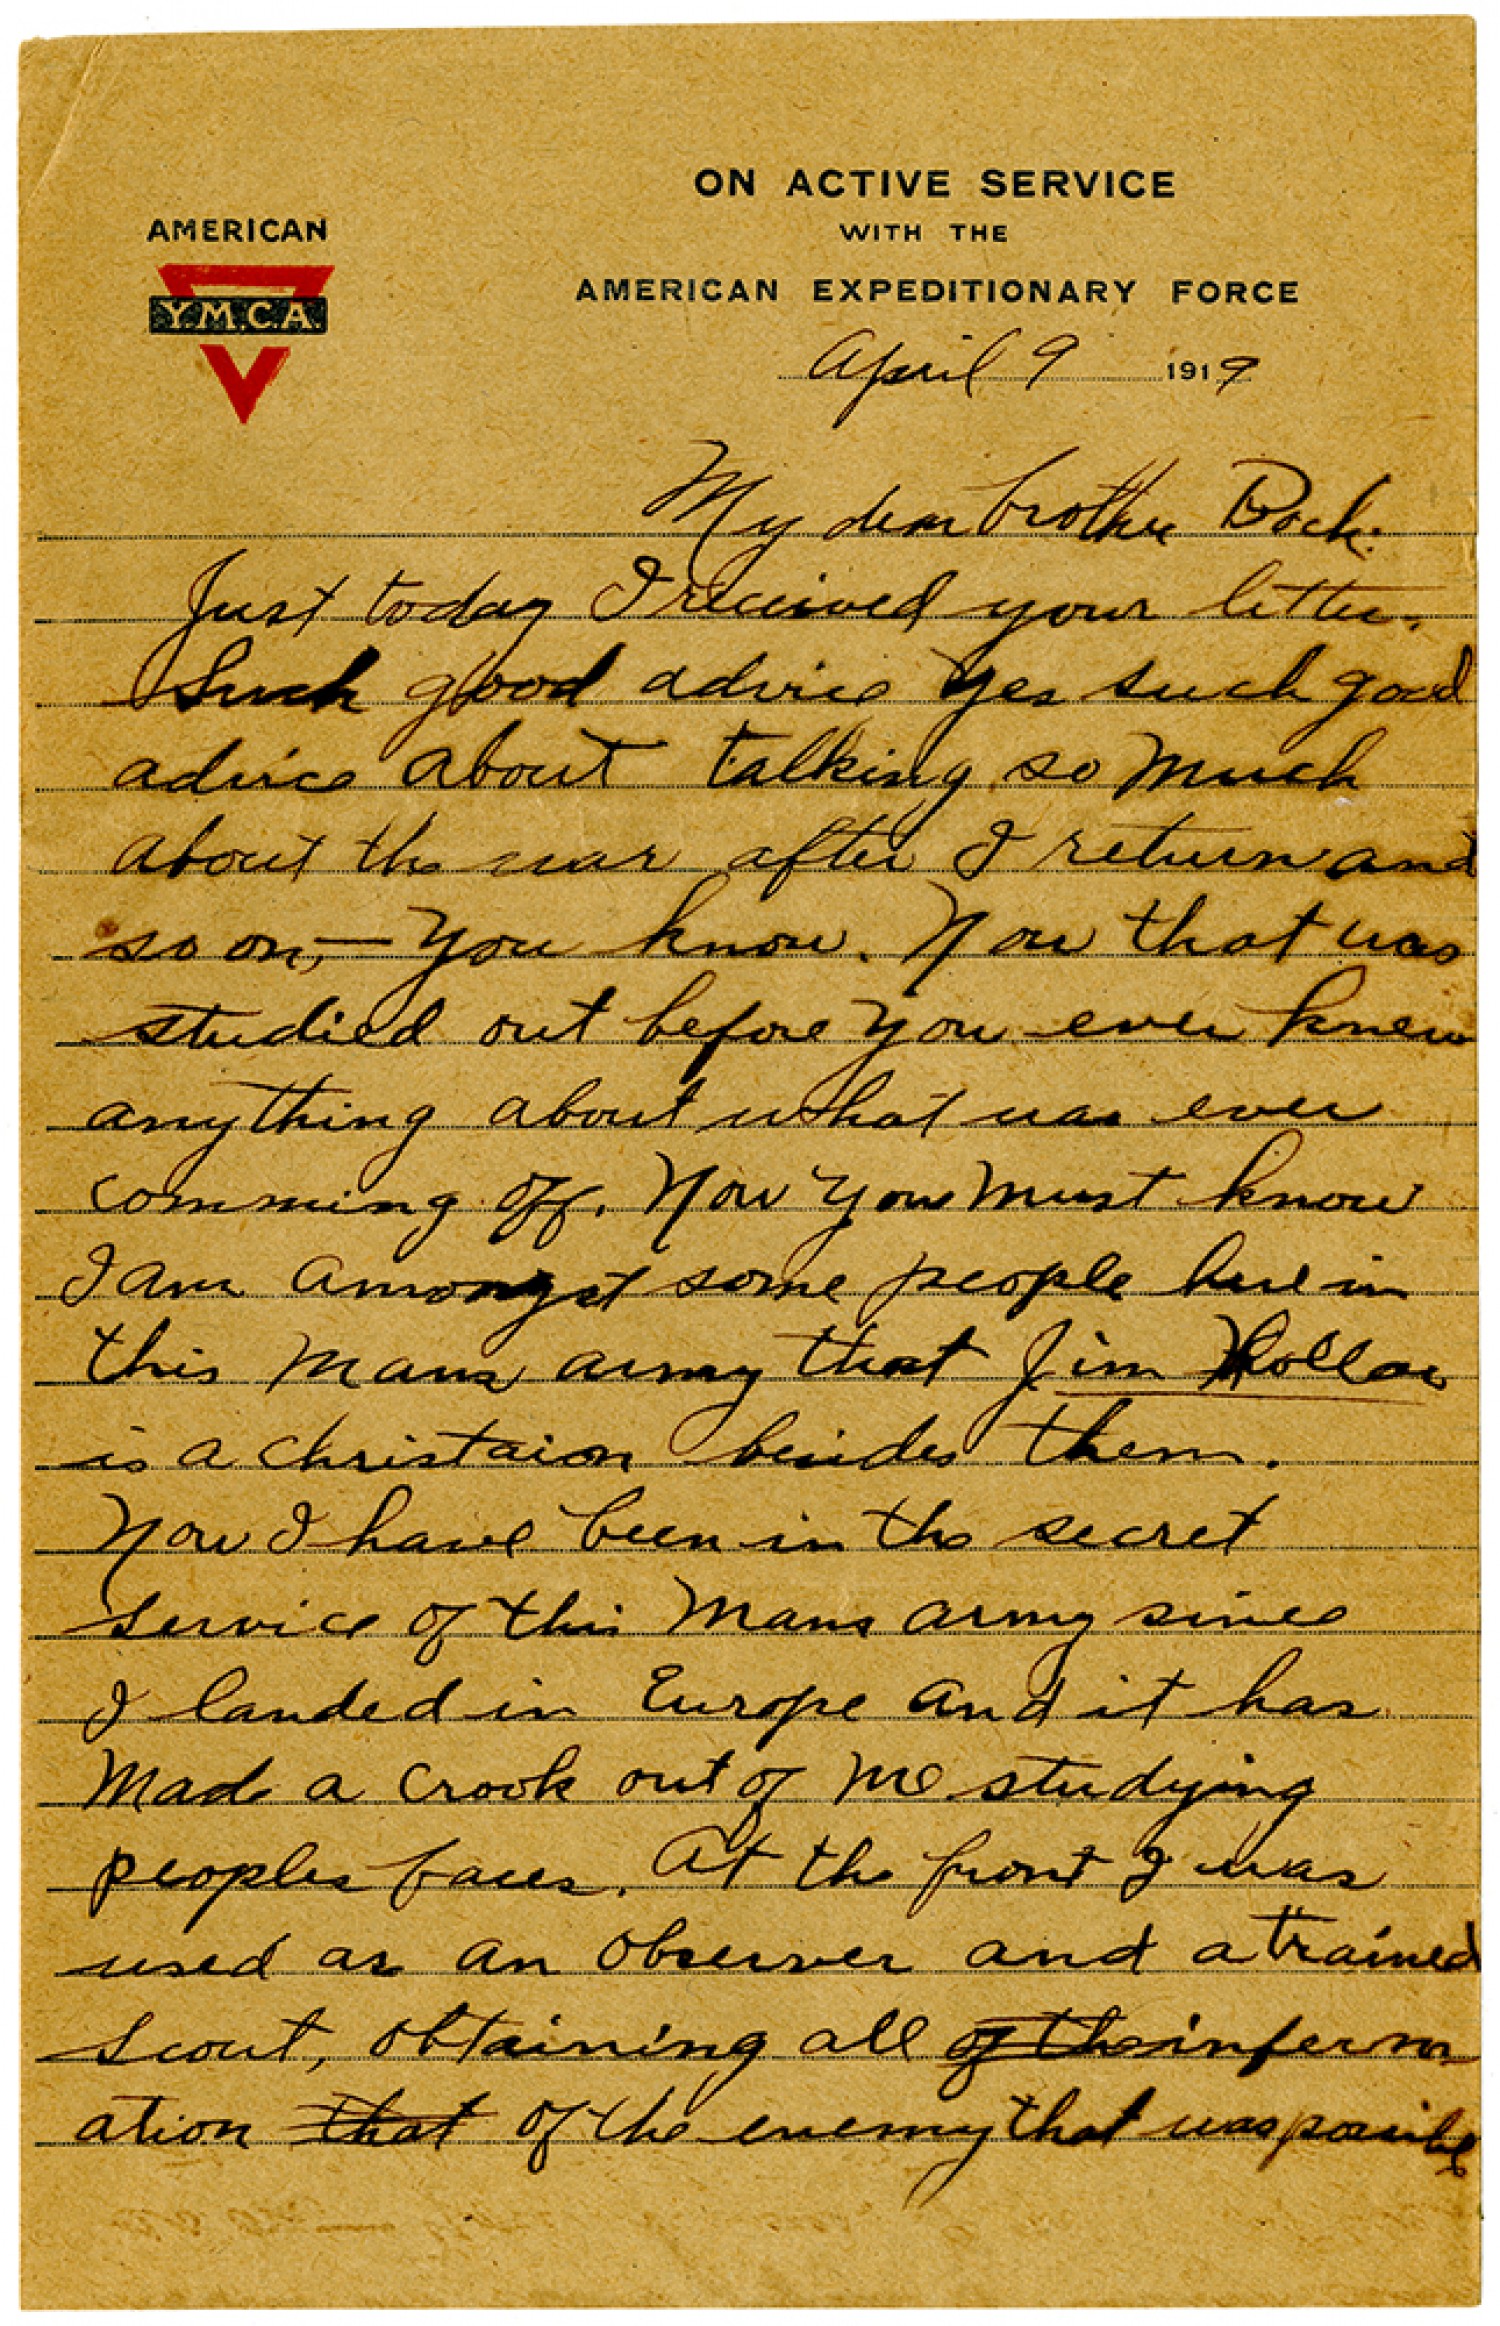 ON ACTIVE SERVICE
WITH THE
AMERICAN
AMERICAN EXPEDITIONARY FORCE
Y.M.C.A.
April 9 1919
My dear brother Bock:
Just today I received your letter.
Such good advice Yes such good
advice about talking so much
about the war after I return and
so on, — you know. Now that was
studied out before you ever knew
anything about what was ever
comming off. Now you must know
I am amongst some people here in
this mans army that Jim Hollow
is a christaion besides them.
Now I have been in the secret
service of this mans army since
I landed in Europe and it has
made a crook out of me studying
peoples faces. At the front I was
used as an observer and a trained
scout, obtaining all of the inform
ation that of the enemy that was possible